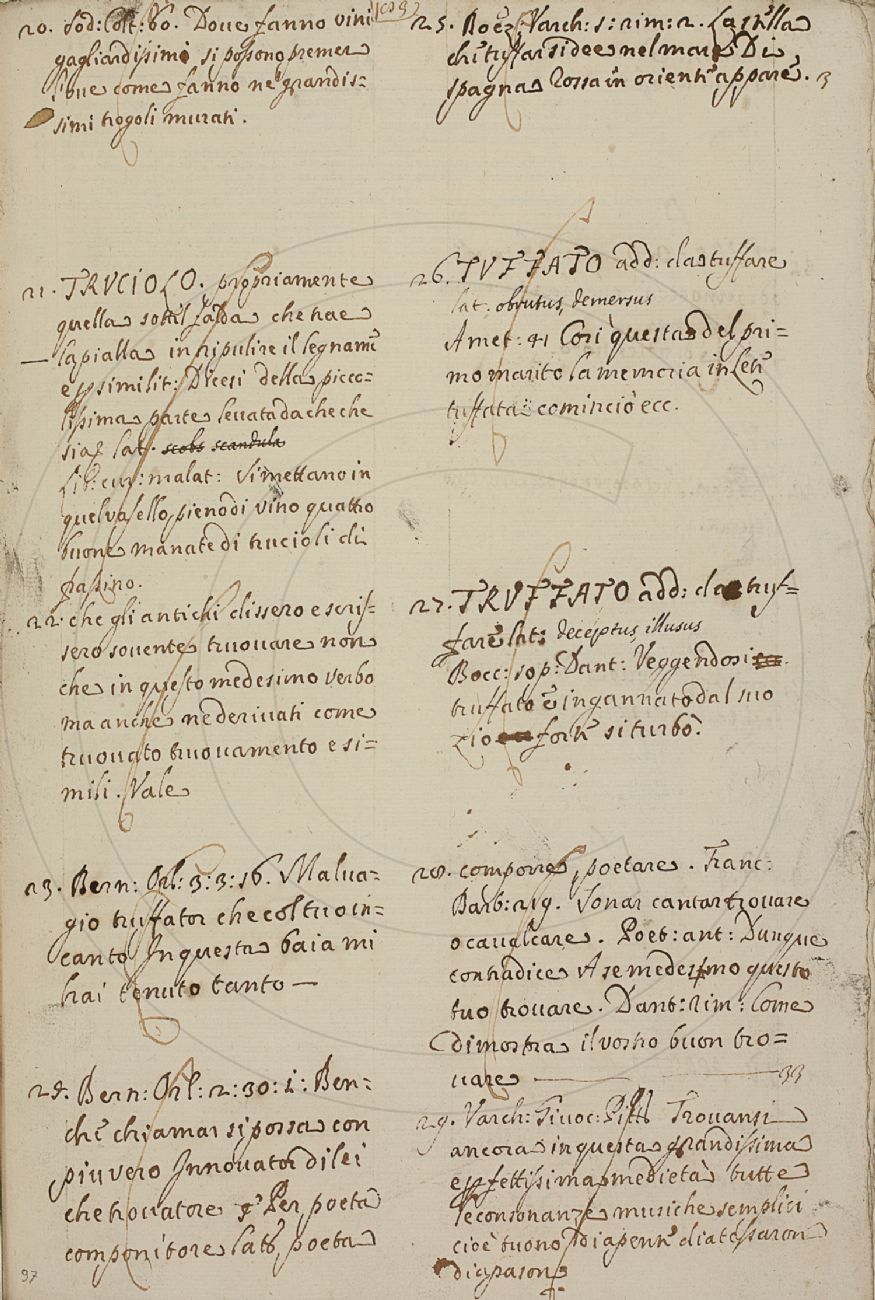 20. Sod: Colt: 60. Dove fanno vini
gagliardissimi si possono premer
l'uve come fanno ne' grandis=
simi trogoli murati.
21. TRUCIOLO. propriamente
quella sottil falda che trae
la pialla in ripulire il legname
e p similit: Dicesi della picco=
lissima parte levata da che che
sia lat. scobs scandula
Lib: cur: malat: Si mettano in
quel vasello pieno di vino quattro
buone manate di trucioli di
frassino.
22. che gli antichi dissero e scris=
sero sovente truovare non
che in questo medesimo verbo
ma anche ne derivati come
truovato truovamento e si=
mili. Vale
23. Bern: Orl: 3: 3: 56. Malva=
gio truffator che col tuo in=
canto In questa baia mi
hai tenuto tanto —
24. Bern: Orl: 2: 30: 1: Ben=
che chiamar si possa con
piu vero Innovator di lei
che trovatore Per poeta
componitore lat: poeta
97
25. Boez: Varch: 1: rim: 2. La stella
che tuffar si dee nel mare Di
spagna Rossa in oriente appare. 3
26. TUFFATO add: da tuffare
lat: obrutus, demersus
Amet: 41 Cosi questa del pri=
mo marito la memoria in Lete
tuffata: cominciò ecc.
27. TRUFFATO add: da truf=
fare lat: deceptus, illusus
Bocc: sop: Dant: Veggendosi
truffato e ingannato dal suo
zio forte si turbò.
28. comporre, poetare. Franc:
Barb: 219. Sonar cantar trovare
o cavalcare. Poet: ant: Dunque
contradice A se medesimo questo
tuo trovare. Dant: rim: Come
Dimostra il vostro buon tro=
vare — 33
29. Varch: Giuoc: Pitt: Trovansi
ancora in questa grandissima
e pfettissima medietà tutte
le consonanze musiche semplici
cioè tuono diapente diatessaron
diapason